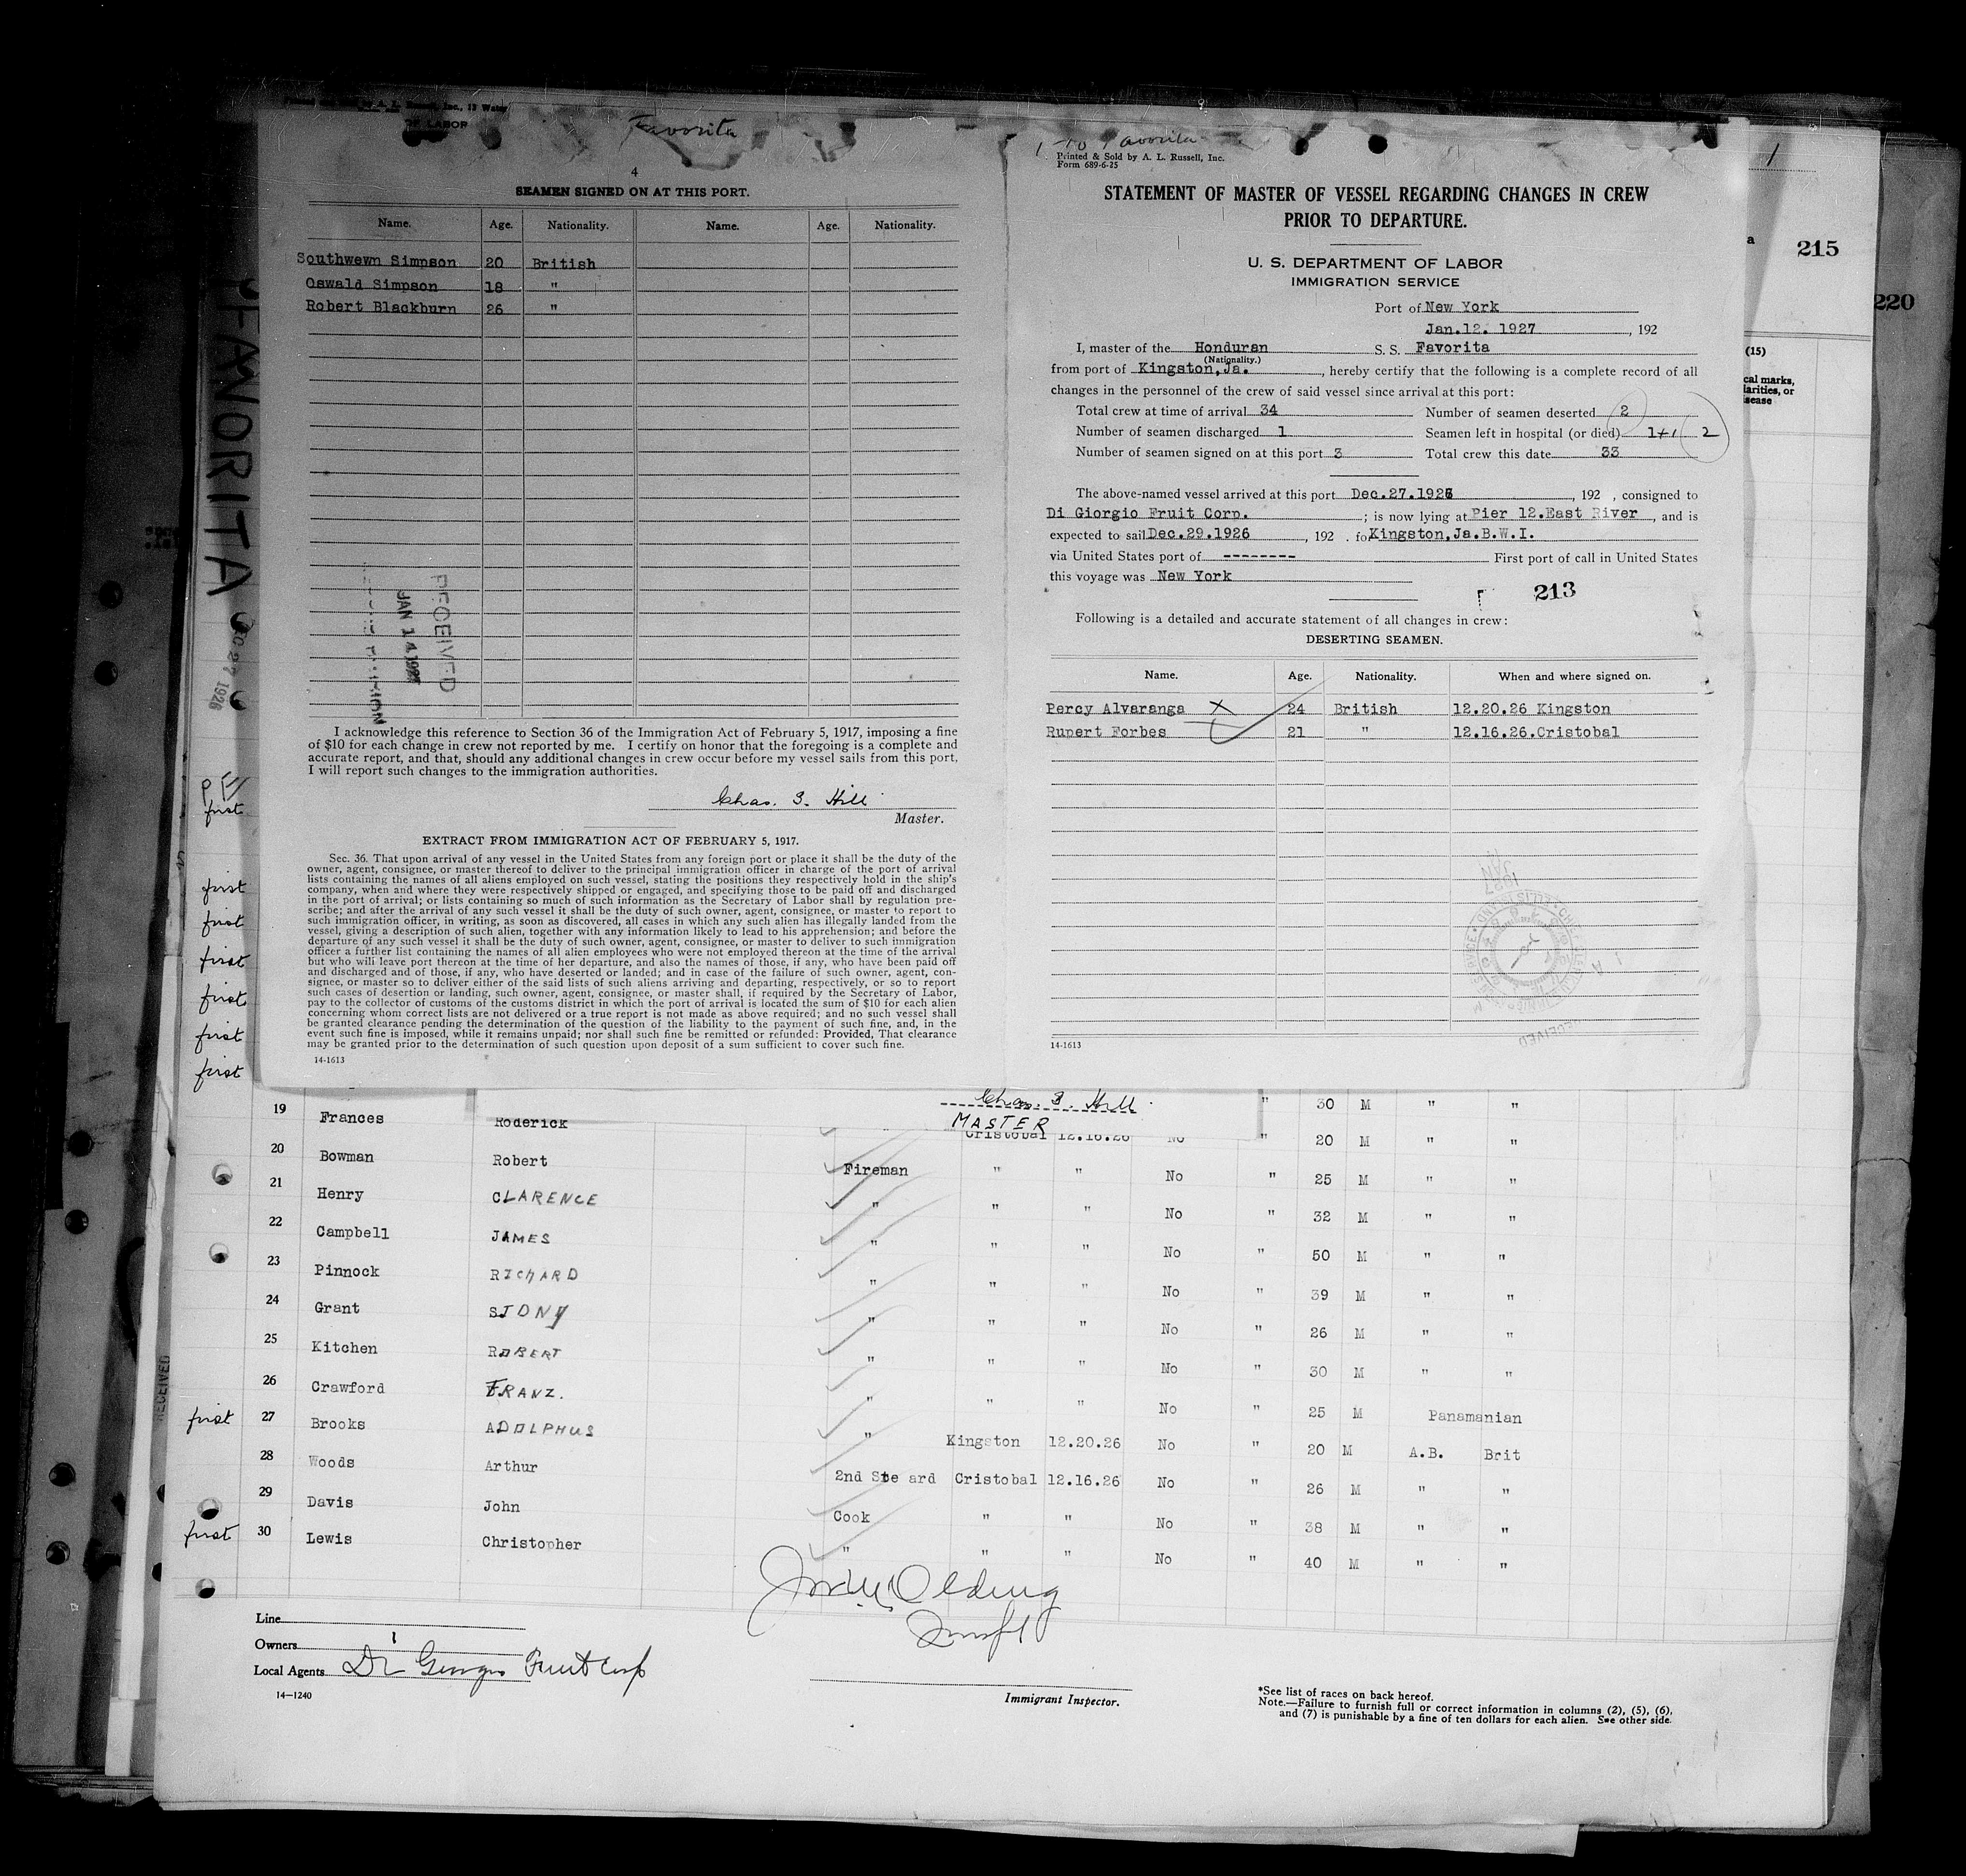 Favorita
4
SEAMEN SIGNED ON AT THIS PORT.
Name. Age. Nationality. Name. Age. Nationality.
Southwewn Simpson 20 British
Oswald Simpson 18 "
Robert Blackburn 26 "
RECEIVED
JAN 14 1927
I acknowledge this reference to Section 36 of the Immigration Act of February 5, 1917, imposing a fine
of $10 for each change in crew not reported by me. I certify on honor that the foregoing is a complete and
accurate report, and that, should any additional changes in crew occur before my vessel sails from this port,
I will report such changes to the immigration authorities.
Chas. S. Hill
Master.
EXTRACT FROM IMMIGRATION ACT OF FEBRUARY 5, 1917.
Sec. 36. That upon arrival of any vessel in the United States from any foreign port or place it shall be the duty of the
owner, agent, consignee, or master thereof to deliver to the principal immigration officer in charge of the port of arrival
lists containing the names of all aliens employed on such vessel, stating the positions they respectively hold in the ship's
company, when and where they were respectively shipped or engaged, and specifying those to be paid off and discharged
in the port of arrival; or lists containing so much of such information as the Secretary of Labor shall by regulation pre-
scribe; and after the arrival of any such vessel it shall be the duty of such owner, agent, consignee, or master to report to
such immigration officer, in writing, as soon as discovered, all cases in which any such alien has illegally landed from the
vessel, giving a description of such alien, together with any information likely to lead to his apprehension; and before the
departure of any such vessel it shall be the duty of such owner, agent, consignee, or master to deliver to such immigration
officer a further list containing the names of all alien employees who were not employed thereon at the time of the arrival
but who will leave port thereon at the time of her departure, and also the names of those, if any, who have been paid off
and discharged and of those, if any, who have deserted or landed; and in case of the failure of such owner, agent, con-
signee, or master so to deliver either of the said lists of such aliens arriving and departing, respectively, or so to report
such cases of desertion or landing, such owner, agent, consignee, or master shall, if required by the Secretary of Labor,
pay to the collector of customs of the customs district in which the port of arrival is located the sum of $10 for each alien
concerning whom correct lists are not delivered or a true report is not made as above required; and no such vessel shall
be granted clearance pending the determination of the question of the liability to the payment of such fine, and, in the
event such fine is imposed, while it remains unpaid; nor shall such fine be remitted or refunded: Provided, That clearance
may be granted prior to the determination of such question upon deposit of a sum sufficient to cover such fine.
14-1613
Favorita
Printed & Sold by A. L. Russell, Inc.
Form 689-6-25
STATEMENT OF MASTER OF VESSEL REGARDING CHANGES IN CREW
PRIOR TO DEPARTURE.
U. S. DEPARTMENT OF LABOR
IMMIGRATION SERVICE
Port of New York
Jan.12. 1927, 192
I, master of the Honduran S. S. Favorita
(Nationality.)
from port of Kingston,Ja., hereby certify that the following is a complete record of all
changes in the personnel of the crew of said vessel since arrival at this port:
Total crew at time of arrival 34 Number of seamen deserted 2
Number of seamen discharged 1 Seamen left in hospital (or died) 1+1 2
Number of seamen signed on at this port 3 Total crew this date 33
The above-named vessel arrived at this port Dec.27.1926, 192 , consigned to
Di Giorgio Fruit Corp. ; is now lying at Pier 12.East River, and is
expected to sail Dec.29.1926, 192 . fo Kingston,Ja.B.W.I.
via United States port of -------- First port of call in United States
this voyage was New York
213
Following is a detailed and accurate statement of all changes in crew:
DESERTING SEAMEN.
Name. Age. Nationality. When and where signed on.
Percy Alvaranga X 24 British 12.20.26 Kingston
Rupert Forbes 21 " 12.16.26.Cristobal
14-1613
RECEIVED
215
220
(15)
cal marks,
larities, or
sease
FAVORITA
27 1926
first
first
first
first
first
first
first
Chas. S. Hill
MASTER
19 Frances Roderick " 30 M " "
Cristobal 12.16.26 No " 20 M " "
20 Bowman Robert Fireman " " No " 25 M " "
21 Henry CLARENCE " " " No " 32 M " "
22 Campbell JAMES " " " No " 50 M " "
23 Pinnock RICHARD " " " No " 39 M " "
24 Grant SIDNY " " " No " 26 M " "
25 Kitchen ROBERT " " " No " 30 M " "
26 Crawford FRANZ. " " " No " 25 M Panamanian
first 27 Brooks ADOLPHUS " Kingston 12.20.26 No " 20 M A.B. Brit
28 Woods Arthur 2nd Ste ard Cristobal 12.16.26 No " 26 M " "
29 Davis John Cook " " No " 38 M " "
first 30 Lewis Christopher " " " No " 40 M " "
Line
Owners
Local Agents Di Giorgio Fruit Corp
14—1240
Immigrant Inspector.
*See list of races on back hereof.
Note.—Failure to furnish full or correct information in columns (2), (5), (6),
and (7) is punishable by a fine of ten dollars for each alien. See other side.
RECEIVED